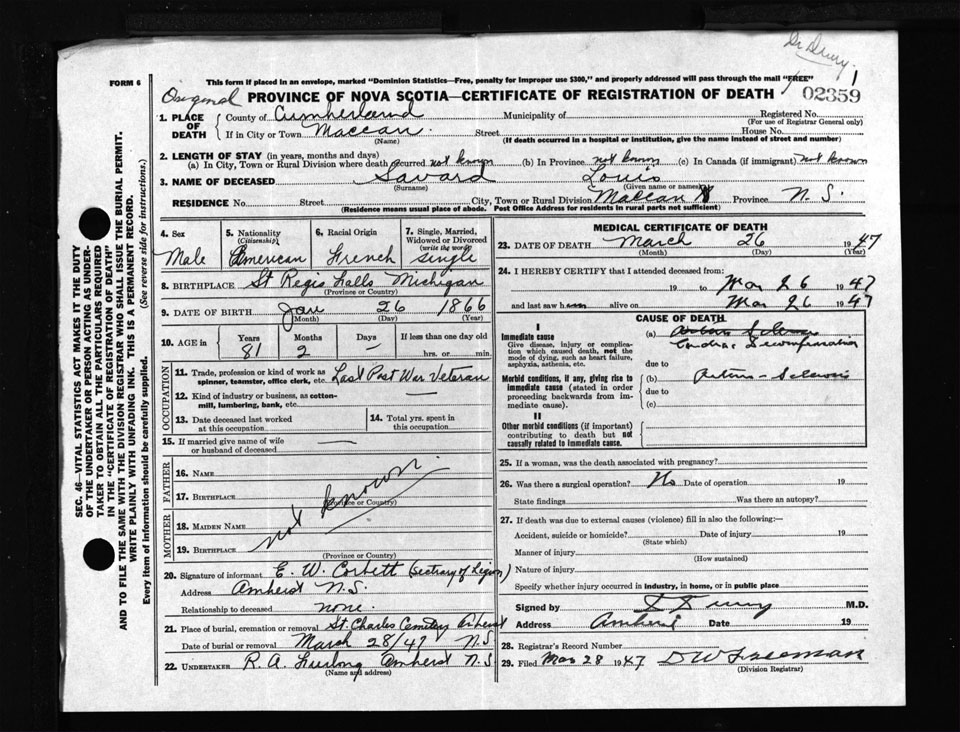 Dr Drury
FORM 6
This form if placed in an envelope, marked "Dominion Statistics—Free, penalty for improper use $300," and properly addressed will pass through the mail "FREE"
1
Original PROVINCE OF NOVA SCOTIA—CERTIFICATE OF REGISTRATION OF DEATH 02359
1. PLACE OF DEATH
County of Cumberland Municipality of Registered No.
(For use of Registrar General only)
If in City or Town Maccan. Street House No.
(Name) (If death occurred in a hospital or institution, give the name instead of street and number)
2. LENGTH OF STAY (in years, months and days)
(a) In City, Town or Rural Division where death occurred not known (b) In Province not known (c) In Canada (if immigrant) not known
3. NAME OF DECEASED Savard Louis
(Surname) (Given name or names)
RESIDENCE No. Street City, Town or Rural Division Maccan Province N.S.
(Residence means usual place of abode. Post Office Address for residents in rural parts not sufficient)
4. Sex
Male
5. Nationality
(Citizenship)
American
6. Racial Origin
French
7. Single, Married, Widowed or Divorced
(write the word)
single
8. BIRTHPLACE St Regis Falls Michigan
(Province or Country)
9. DATE OF BIRTH Jan 26 1866
(Month) (Day) (Year)
10. AGE in
Years Months Days If less than one day old
81 2 — hrs. or min.
OCCUPATION
11. Trade, profession or kind of work as spinner, teamster, office clerk, etc. Last Post War Veteran
12. Kind of industry or business, as cotton-mill, lumbering, bank, etc. —
13. Date deceased last worked at this occupation
14. Total yrs. spent in this occupation
15. If married give name of wife or husband of deceased —
FATHER
16. NAME
17. BIRTHPLACE
(Province or Country)
MOTHER
18. MAIDEN NAME
19. BIRTHPLACE
(Province or Country)
not known.
20. Signature of informant E. W. Corbett (Secretary of Legion)
Address Amherst N.S.
Relationship to deceased none.
21. Place of burial, cremation or removal St. Charles Cemetery Amherst
Date of burial or removal March 28/47 N.S.
22. UNDERTAKER R. A. Furlong Amherst N.S.
(Name and address)
MEDICAL CERTIFICATE OF DEATH
23. DATE OF DEATH March 26 1947
(Month) (Day) (Year)
24. I HEREBY CERTIFY that I attended deceased from:
19 to Mar 26 1947
and last saw him alive on Mar 26 1947
CAUSE OF DEATH
I
Immediate cause
Give disease, injury or complication which caused death, not the mode of dying, such as heart failure, asphyxia, asthenia, etc.
(a)
Cardiac Decompensation
due to
Morbid conditions, if any, giving rise to immediate cause (stated in order proceeding backwards from immediate cause).
(b)
due to
(c)
II
Other morbid conditions (if important) contributing to death but not causally related to immediate cause.
25. If a woman, was the death associated with pregnancy?
26. Was there a surgical operation? No Date of operation 19
State findings Was there an autopsy?
27. If death was due to external causes (violence) fill in also the following:—
Accident, suicide or homicide? Date of injury 19
(State which)
Manner of injury
(How sustained)
Nature of injury
Specify whether injury occurred in industry, in home, or in public place
Signed by M.D.
Address Amherst Date 19
28. Registrar's Record Number
29. Filed Mar 28 1947 D W Freeman
(Division Registrar)
SEC. 46—VITAL STATISTICS ACT MAKES IT THE DUTY
OF THE UNDERTAKER OR PERSON ACTING AS UNDER-
TAKER TO OBTAIN ALL THE PARTICULARS REQUIRED
IN THE "CERTIFICATE OF REGISTRATION OF DEATH"
AND TO FILE THE SAME WITH THE DIVISION REGISTRAR WHO SHALL ISSUE THE BURIAL PERMIT.
WRITE PLAINLY WITH UNFADING INK. THIS IS A PERMANENT RECORD.
Every item of information should be carefully supplied. (See reverse side for instructions.)